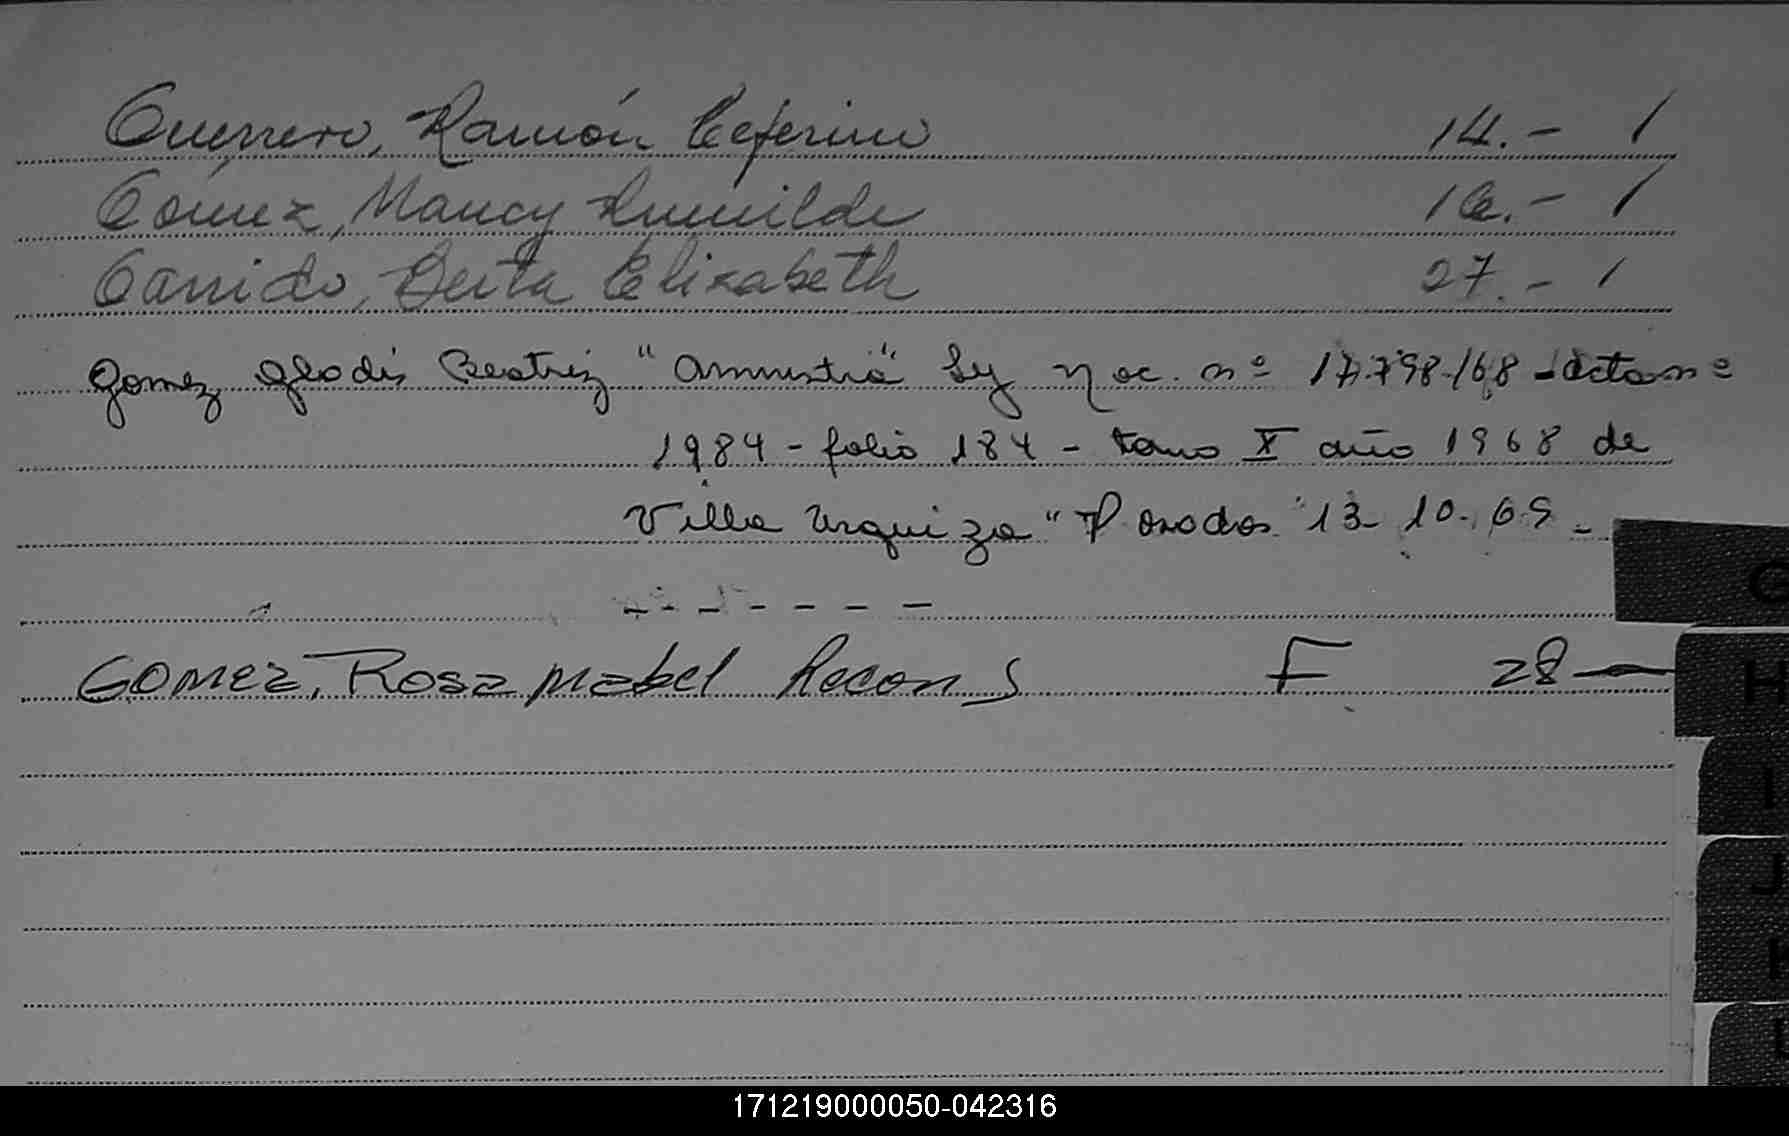 Guerrero, Ramón Ceferino 14.- 1
Gómez, Nancy Rumilde 16.- 1
Garrido, Berta Elizabeth 27.- 1
Gomez Gladis Beatriz "Amnistia" Ley Nac. nº 17.798/68 - Acta nº
1984 - folio 184 - tomo X año 1968 de
Villa Urquiza "Posadas 13-10-69-
GOMEZ, ROSA Mabel Recon S F 28—
G
H
I
J
K
L
171219000050-042316